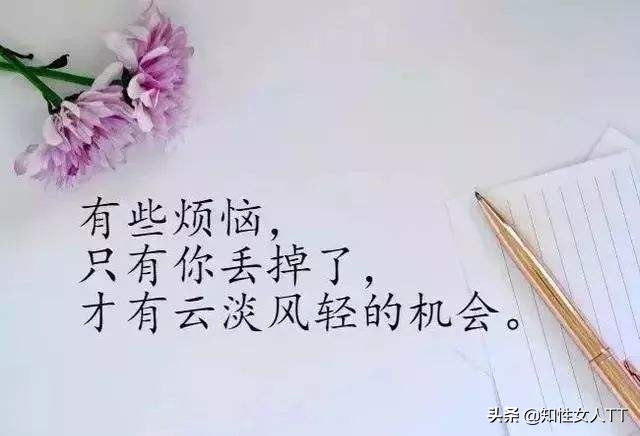 有些烦恼，
只有你丢掉了，
才有云淡风轻的机会。
头条 @知性女人TT